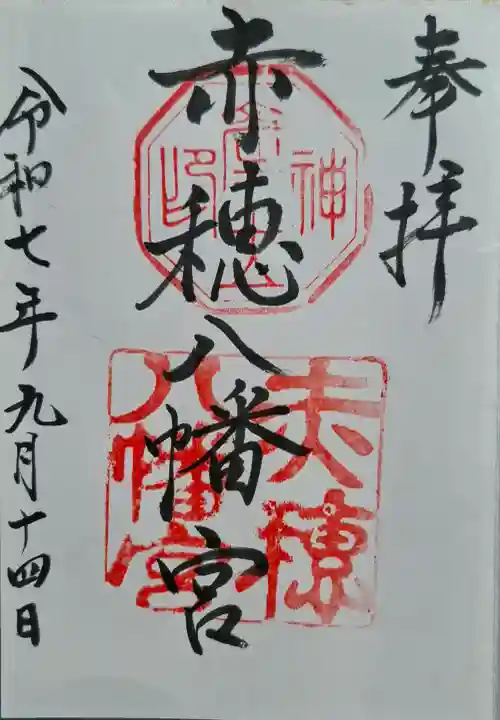 奉拝
赤穂八幡宮
令和七年九月十四日
赤穂
八幡宮